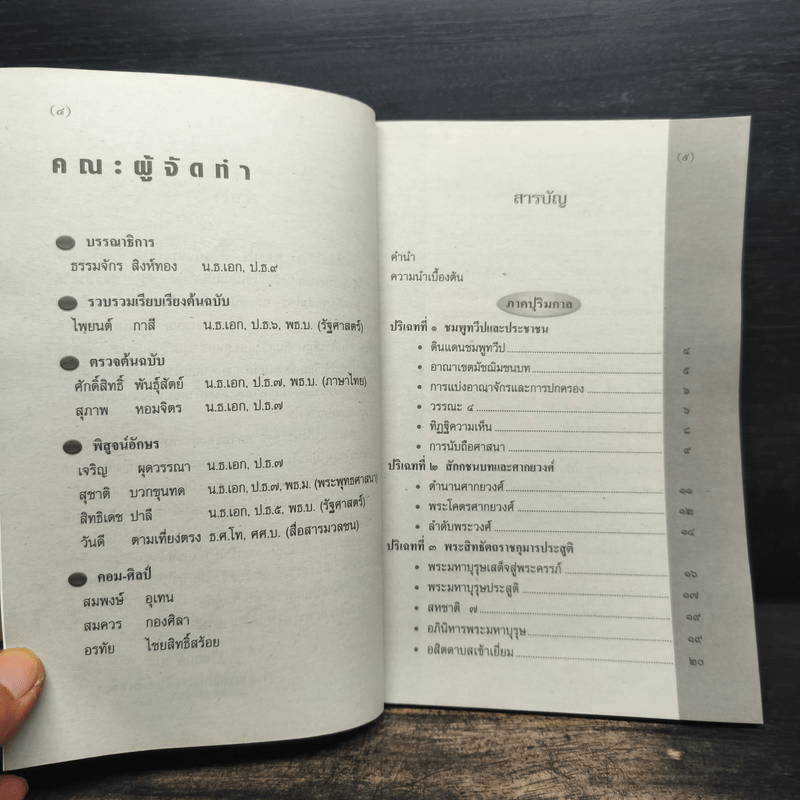 (๔)
คณะผู้จัดทำ
บรรณาธิการ
ธรรมจักร สิงห์ทอง น.ธ.เอก, ป.ธ.๙
รวบรวมเรียบเรียงต้นฉบับ
ไพยนต์ กาสี น.ธ.เอก, ป.ธ.๖, พธ.บ. (รัฐศาสตร์)
ตรวจต้นฉบับ
ศักดิ์สิทธิ์ พันธุ์สัตย์ น.ธ.เอก, ป.ธ.๗, พธ.บ. (ภาษาไทย)
สุภาพ หอมจิตร น.ธ.เอก, ป.ธ.๗
พิสูจน์อักษร
เจริญ ผุดวรรณา น.ธ.เอก, ป.ธ.๗
สุชาติ บวกขุนทด น.ธ.เอก, ป.ธ.๗, พธ.ม. (พระพุทธศาสนา)
สิทธิเดช ปาลี น.ธ.เอก, ป.ธ.๕, พธ.บ. (รัฐศาสตร์)
วันดี ตามเที่ยงตรง ธ.ศ.โท, ศศ.บ. (สื่อสารมวลชน)
คอม-ศิลป์
สมพงษ์ อุเทน
สมควร กองศิลา
อรทัย ไชยสิทธิ์สร้อย
(๕)
สารบัญ
คำนำ
ความนำเบื้องต้น
ภาคปุริมกาล
ปริเฉทที่ ๑ ชมพูทวีปและประชาชน
ดินแดนชมพูทวีป ๔
อาณาเขตมัชฌิมชนบท ๕
การแบ่งอาณาจักรและการปกครอง ๖
วรรณะ ๔ ๖
ทิฏฐิความเห็น ๘
การนับถือศาสนา ๙
ปริเฉทที่ ๒ สักกชนบทและศากยวงศ์
ตำนานศากยวงศ์ ๑๑
พระโคตรศากยวงศ์ ๑๒
ลำดับพระวงศ์ ๑๔
ปริเฉทที่ ๓ พระสิทธัตถราชกุมารประสูติ
พระมหาบุรุษเสด็จสู่พระครรภ์ ๑๖
พระมหาบุรุษประสูติ ๑๗
สหชาติ ๗ ๑๙
อภินิหารพระมหาบุรุษ ๑๙
อสิตดาบสเข้าเยี่ยม ๒๐